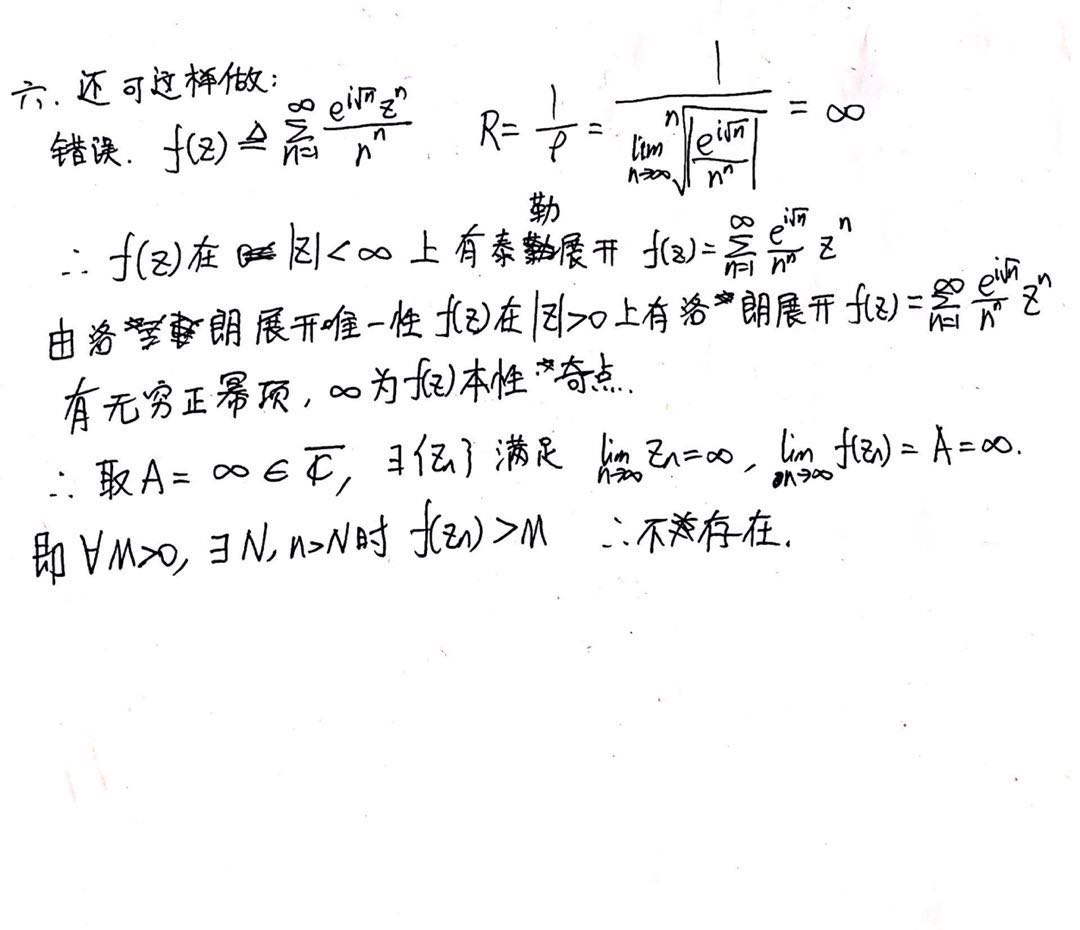 六. 还可这样做:
错误. f(z) ≜ ∑_{n=1}^{∞} \frac{e^{i√n} z^n}{n^n} R = \frac{1}{ρ} = \frac{1}{\lim_{n→∞} \sqrt[n]{|\frac{e^{i√n}}{n^n}|}} = ∞
∴ f(z)在 |z|<∞ 上有泰勒展开 f(z)=∑_{n=1}^{∞} \frac{e^{i√n}}{n^n} z^n
由洛朗展开唯一性 f(z)在|z|>0上有洛朗展开 f(z)=∑_{n=1}^{∞} \frac{e^{i√n}}{n^n} z^n
有无穷正幂项, ∞为f(z)本性奇点.
∴ 取A = ∞ ∈ \overline{ℂ}, ∃{z_n} 满足 \lim_{n→∞} z_n=∞, \lim_{n→∞} f(z_n) = A = ∞.
即 ∀M>0, ∃N, n>N时 f(z_n)>M ∴不存在.